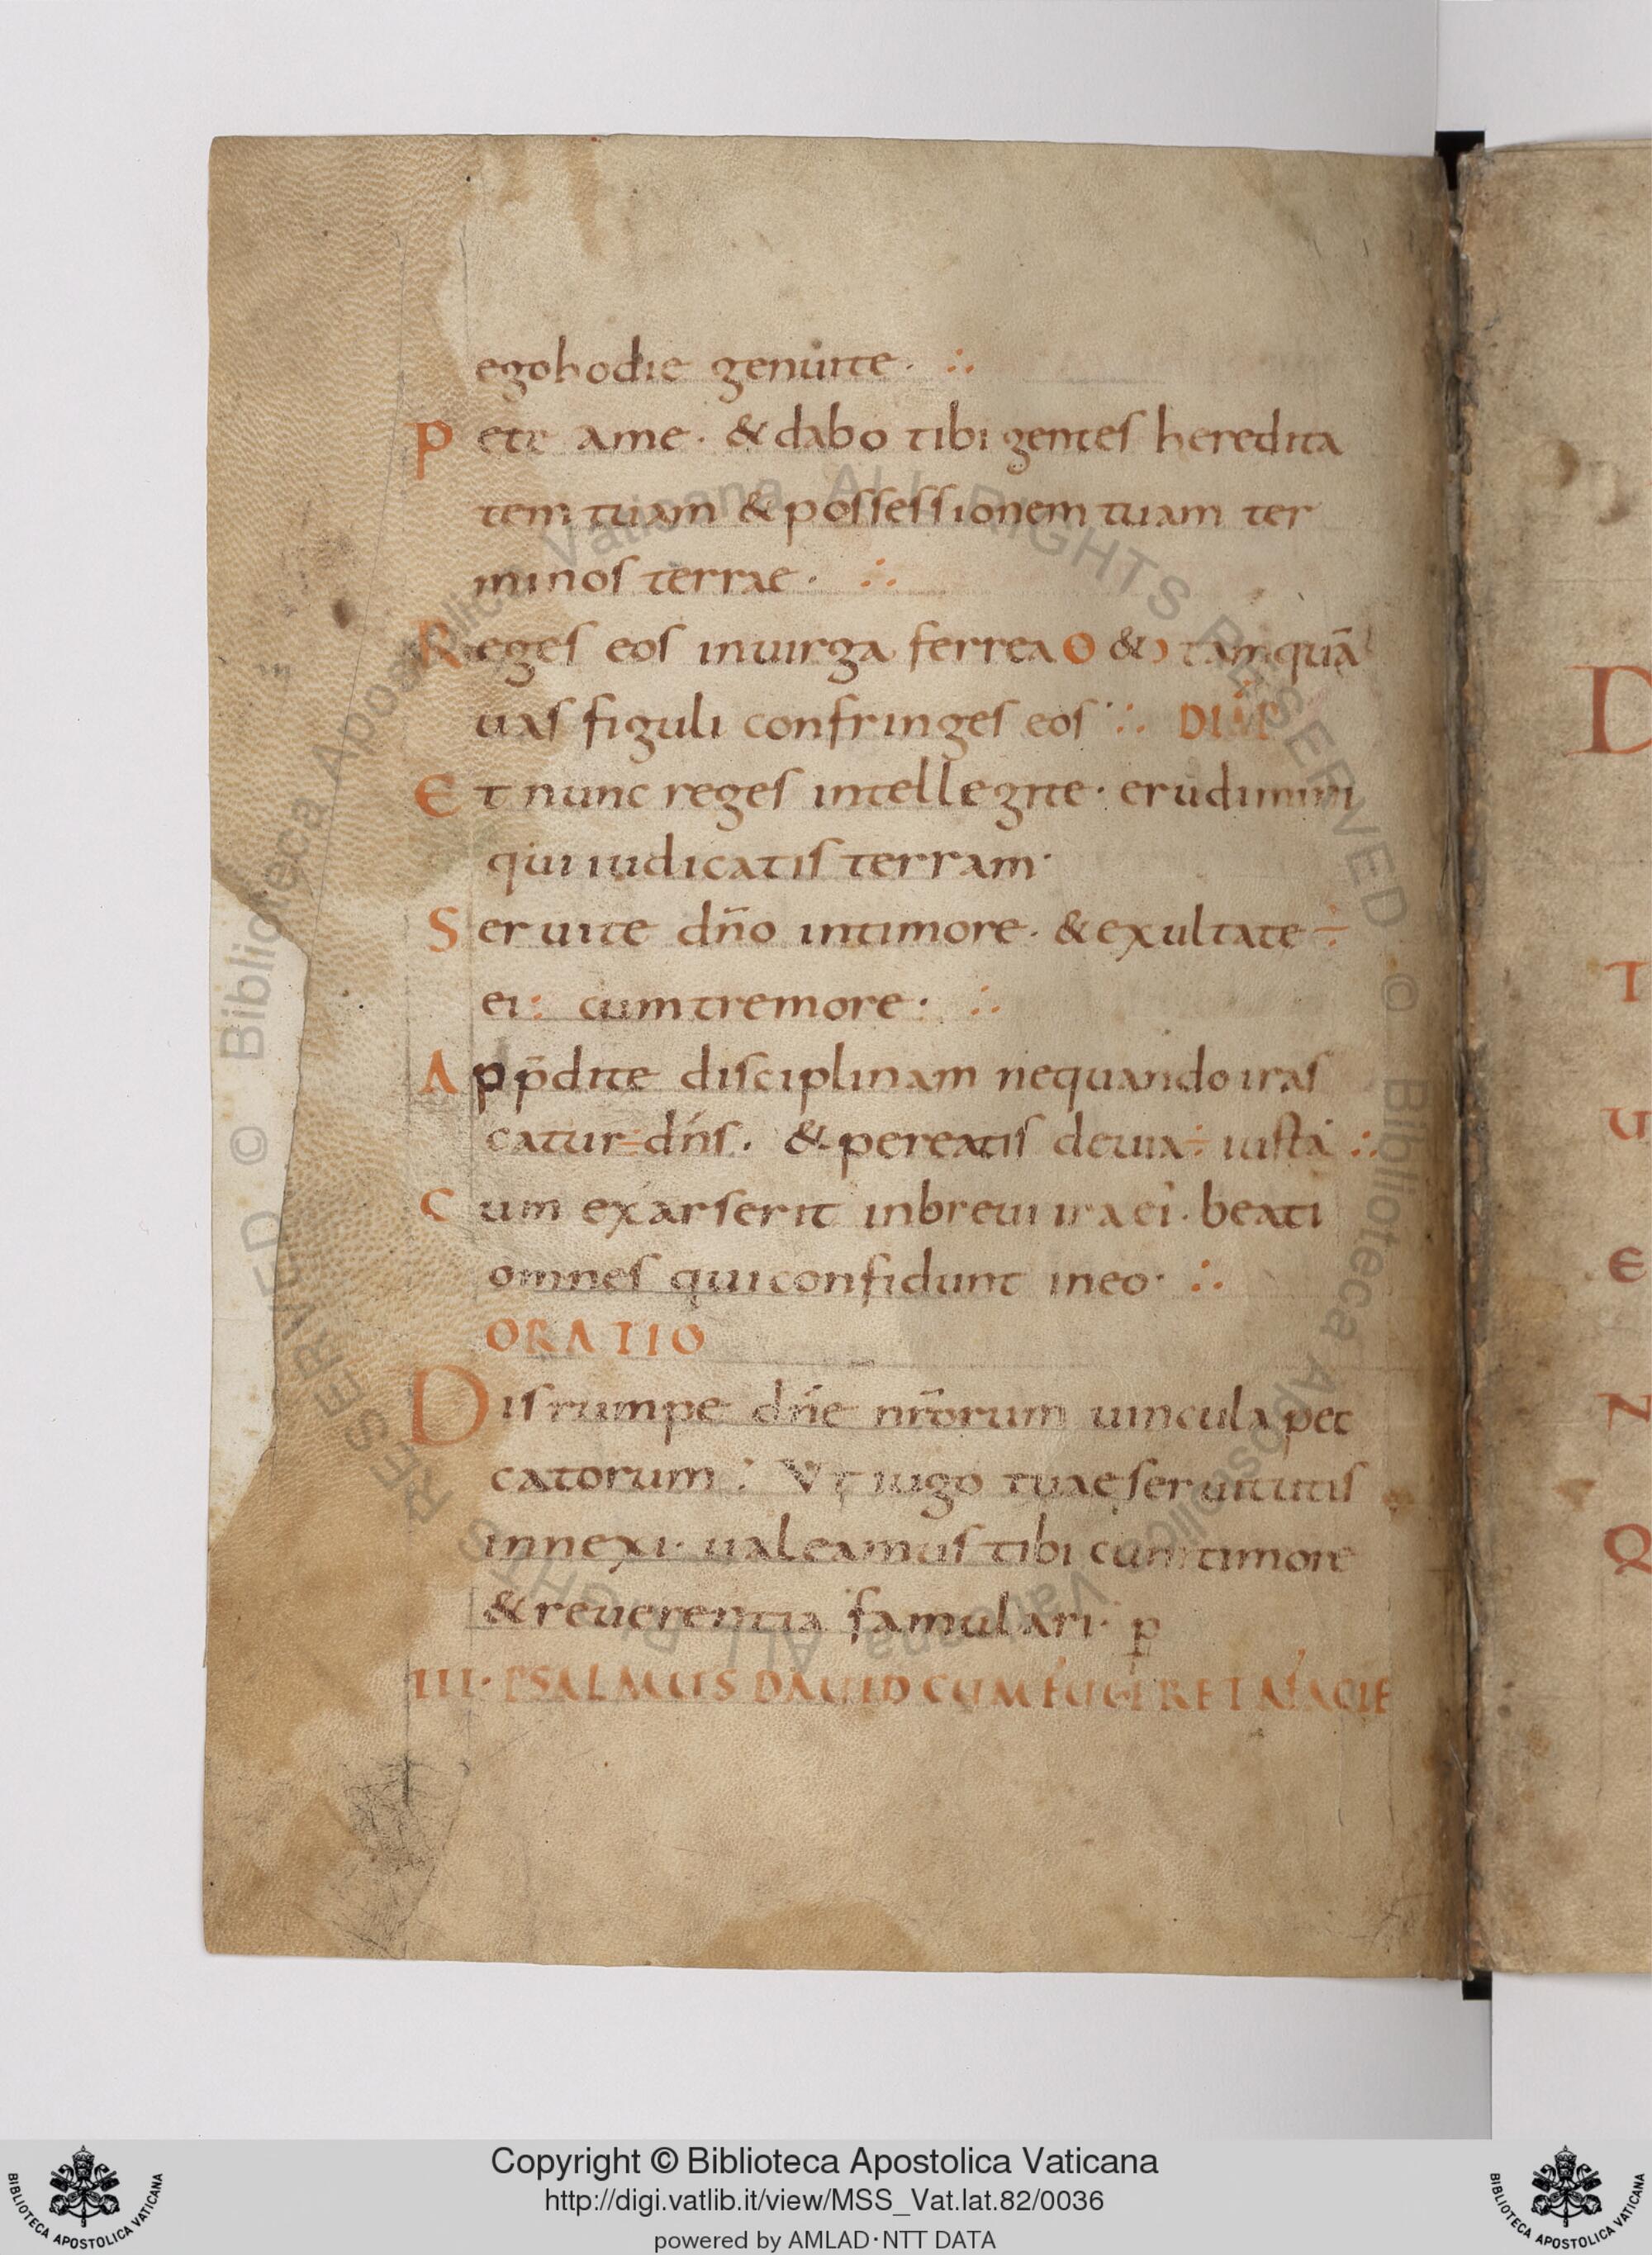 egohodie genuite · ∴
P ete ame · & dabo tibi gentes heredita
tem tuam & possessionem tuam ter
minos terrae · ∴
Reges eos inuirga ferrea O & tamquā
uas figuli confringes eos ∴
E t nunc reges intellegite · erudimini
qui iudicatis terram ·
S eruite dn̄o intimore · & exultate ÷
ei : cum tremore · ∴
A pp̄dite disciplinam nequando iras
catur dn̄s · & pereatis deuia ÷ iusta ∴
C um exarserit inbreui ira ei · beati
omnes qui confidunt ineo · ∴
ORATIO
Disrumpe dn̄e nr̄orum uincula pec
catorum : Vt iugo tuae seruitutis
innexi · ualeamus tibi cum timore
& reuerentia famulari · p
III · PSALMUS DAUID CUM FUGERET AFACIE
D
T
U
E
N
Q
Copyright © Biblioteca Apostolica Vaticana
http://digi.vatlib.it/view/MSS_Vat.lat.82/0036
powered by AMLAD·NTT DATA
BIBLIOTECA APOSTOLICA VATICANA
BIBLIOTECA APOSTOLICA VATICANA
© Biblioteca Apostolica Vaticana ALL RIGHTS RESERVED © Biblioteca Apostolica Vaticana ALL RIGHTS RESERVED